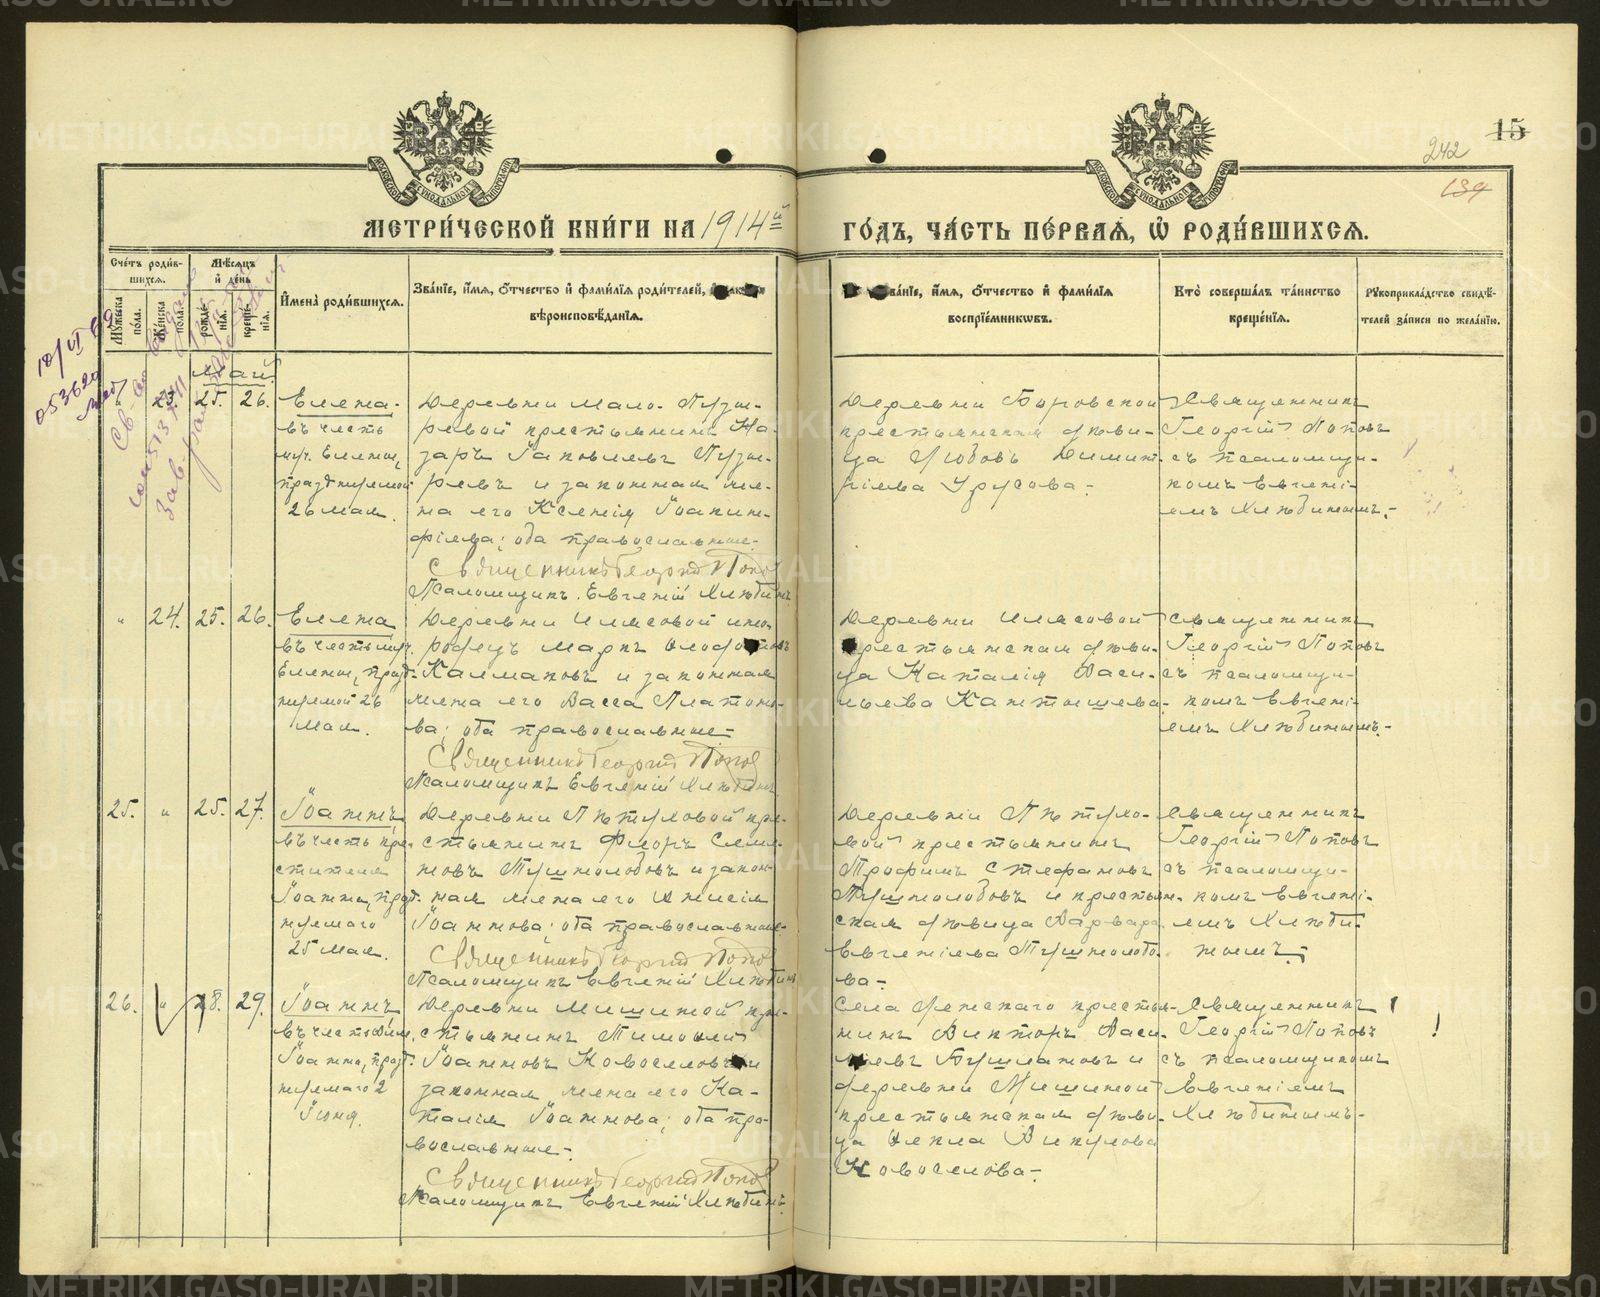 15
242
139
МЕТРИЧЕСКОЙ КНИГИ НА 1914й ГОДЪ, ЧАСТЬ ПЕРВАЯ, Ѡ РОДИВШИХСЯ.
Счетъ родившихся.
Мужеска пола.
Женска пола.
Мѣсяцъ и день
рожденія.
крещенія.
Имена родившихся.
Званіе, имя, отчество и фамилія родителей, и какого
вѣроисповѣданія.
Званіе, имя, отчество и фамилія
воспріемниковъ.
Кто совершалъ таинство
крещенія.
Рукоприкладство свидѣ-
телей записи по желанію.
Май.
" 23. 25. 26.
Елена
въ честь
муч. Елены,
празднуемой
26 мая.
Деревни Мало-Пузы-
ревой крестьянинъ На-
заръ Іаковлевъ Пузы-
ревъ и законная же-
на его Ксенія Іоаки-
фіева; оба православные.
Священникъ Георгій Поповъ
Псаломщикъ Евгеній Хлѣбинъ
Деревни Боровской
крестьянская дѣви-
ца Любовь Димит-
ріева Урусова.
Священникъ
Георгій Поповъ
съ псаломщи-
комъ Евгені-
емъ Хлѣбинымъ.
" 24. 25. 26.
Елена
въ честь муч.
Елены, празд-
нуемой 26
мая.
Деревни Иласовой ино-
родецъ Маркъ
Калмаковъ и законная
жена его Васса Платоно-
ва; оба православные.
Священникъ Георгій Поповъ
Псаломщикъ Евгеній Хлѣбинъ
Деревни Иласовой
крестьянская дѣви-
ца Наталія Васи-
льева
Священникъ
Георгій Поповъ
съ псаломщи-
комъ Евгені-
емъ Хлѣбинымъ.
25. " 25. 27.
Іоаннъ
въ честь пред-
стителя
Іоанна, празд-
нуемаго
25 мая.
Деревни Пѣтуховой кре-
стьянинъ Флоръ Семе-
новъ Пушмолобовъ и закон-
ная жена его Анисія
Іоаннова; оба православные.
Священникъ Георгій Поповъ
Псаломщикъ Евгеній Хлѣбинъ
Деревни Пѣтухо-
вой крестьянинъ
Трофимъ Стефановъ
Пушмолобовъ и крестьян-
ская дѣвица Варвара
Евгеніева Пушмолобо-
ва.
Священникъ
Георгій Поповъ
съ псаломщи-
комъ Евгені-
емъ Хлѣби-
нымъ.
26. " 28. 29.
Іоаннъ
Іоанна, празд-
нуемаго 2
Іюня.
Деревни Мишиной кре-
стьянинъ Тимофей
Іоанновъ Новоселовъ и
законная жена его На-
талія Іоаннова; оба пра-
вославные.
Священникъ Георгій Поповъ
Псаломщикъ Евгеній Хлѣбинъ
Села крестья-
нинъ Викторъ Васи-
льевъ Бушлановъ и
деревни Мишиной
крестьянская дѣви-
ца Ѳекла Викулова
Новоселова.
Священникъ
Георгій Поповъ
съ псаломщикомъ
Евгеніемъ
Хлѣбинымъ.
METRIKI.GASO-URAL.RU